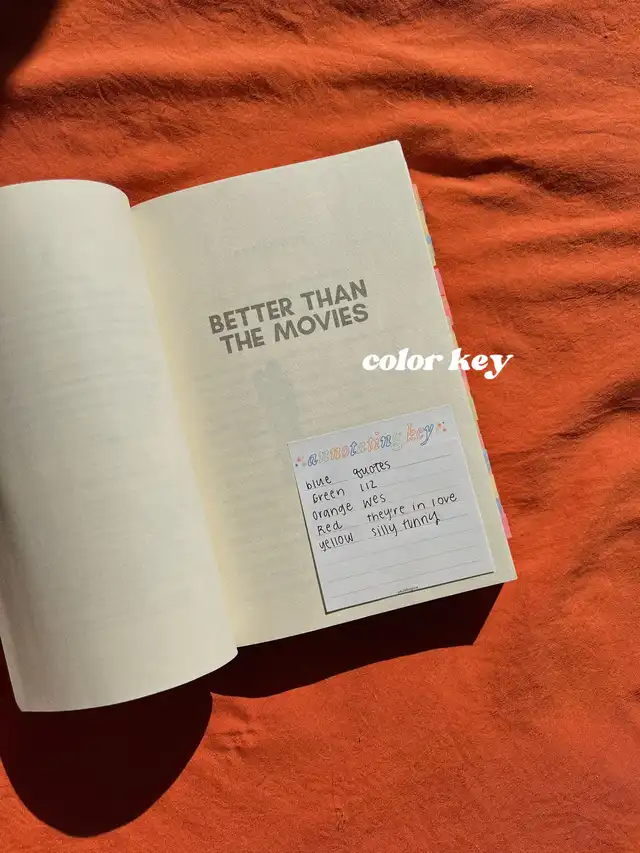 BETTER THAN
THE MOVIES
color key
annotating key
blue quotes
Green Liz
orange Wes
Red they're in love
yellow silly funny